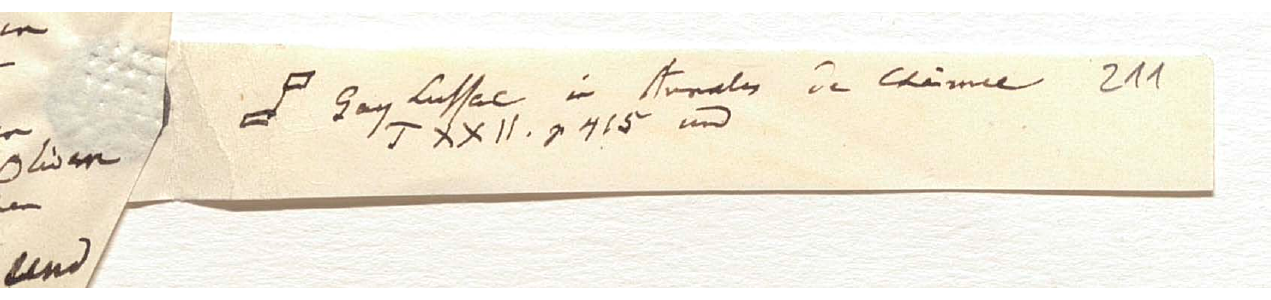 Gay Lussac in Annales de Chimie 211
T XXII. p 415 und
Oliven
und